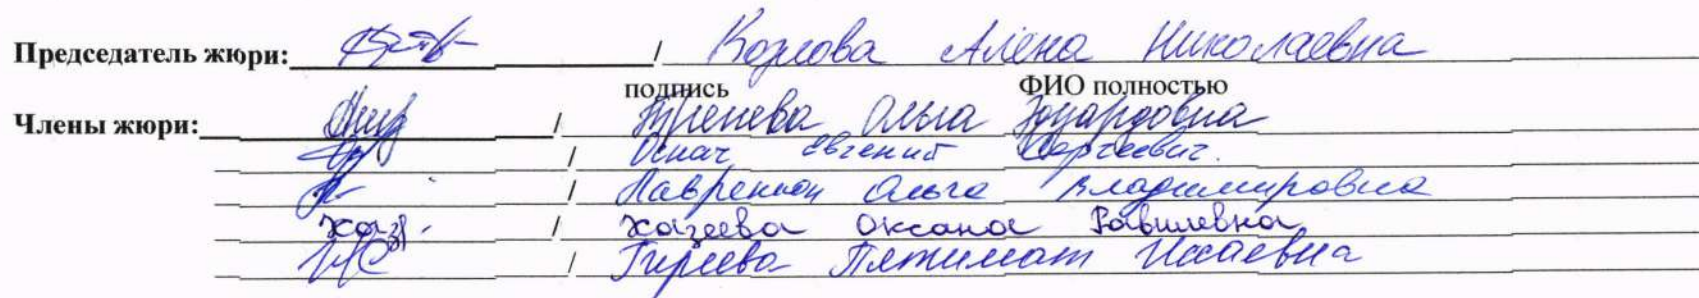 Председатель жюри: / Козлова Алёна Николаевна
подпись ФИО полностью
Члены жюри: / Ольга Эдуардовна
/ Евгений Сергеевич.
/ Ольга Владимировна
хаз / Хазеева Оксана Равилевна
/ Гиреева Исаевна